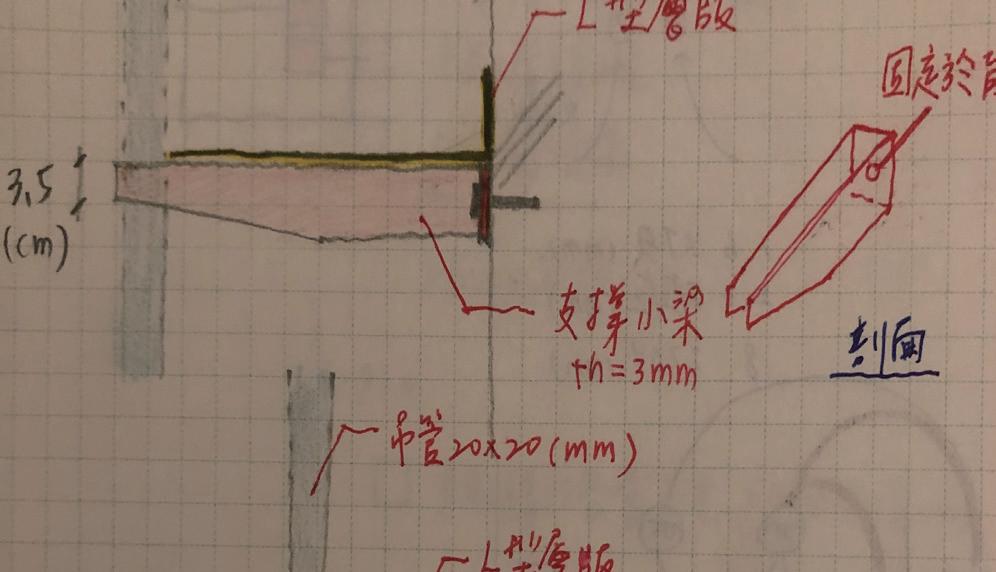 L型層版
固定於
3.5
(cm)
支撐小梁
th=3mm
剖面
吊管20×20(mm)
L型層版